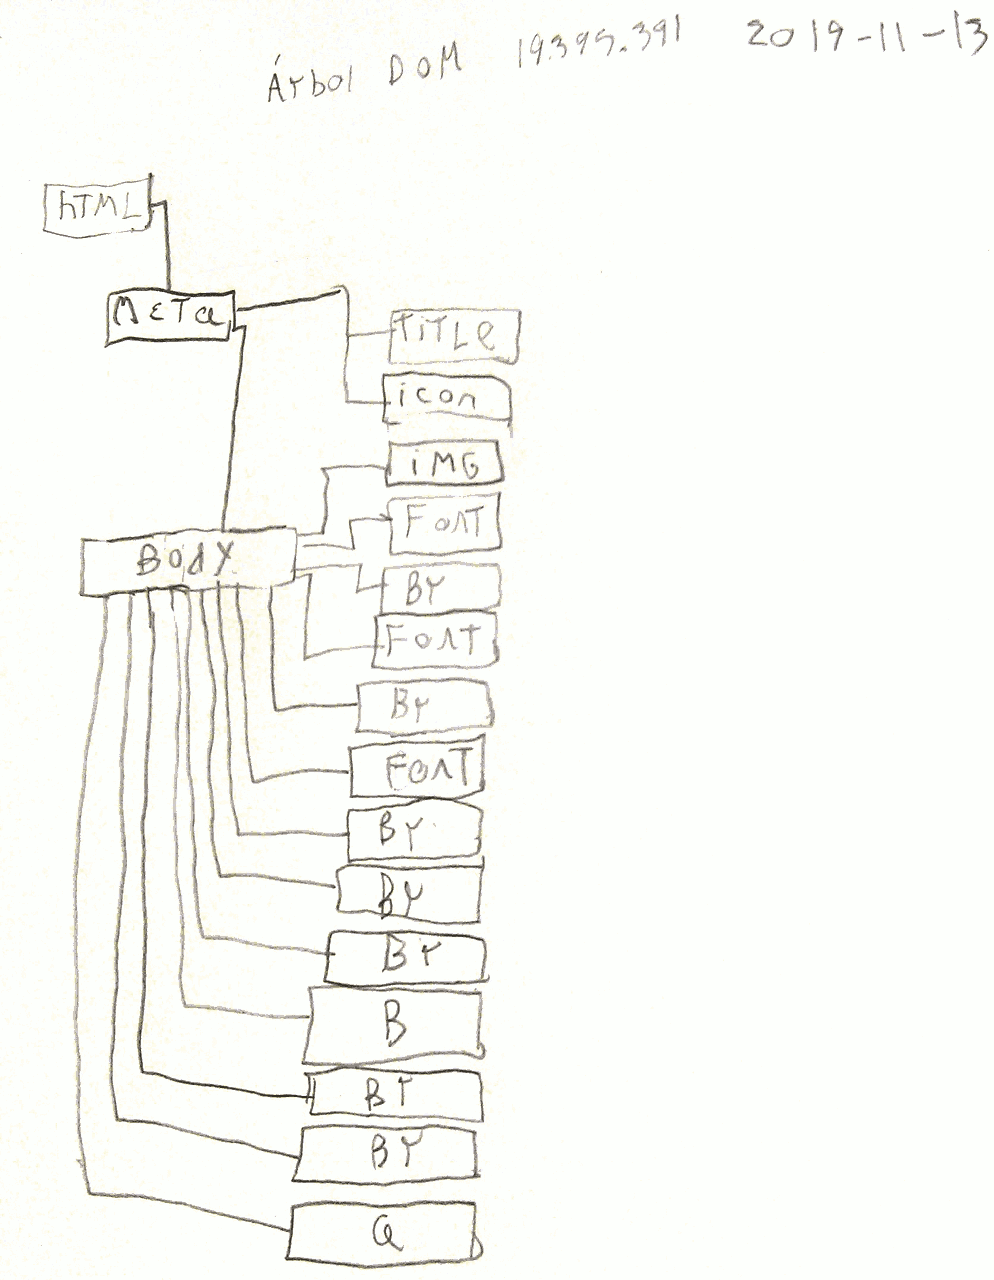 Árbol DOM 19395.391 2019-11-13
hTML
META
TiTLe
icon
iMG
FonT
BODY
Br
FonT
Br
FonT
Br
Br
Br
B
Br
Br
a